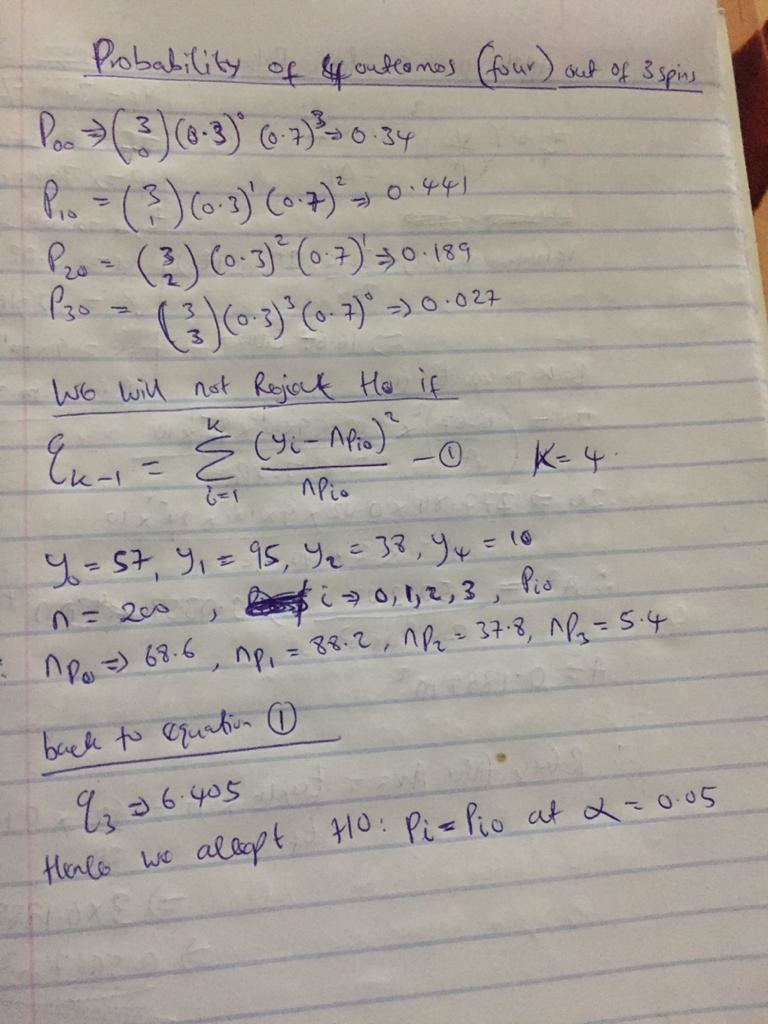 Probability of 4 outcomes (four) out of 3 spins
P₀₀ ⇒ (3 0) (0.3)⁰ (0.7)³ ⇒ 0.34
P₁₀ = (3 1) (0.3)¹ (0.7)² ⇒ 0.441
P₂₀ = (3 2) (0.3)² (0.7)¹ ⇒ 0.189
P₃₀ = (3 3) (0.3)³ (0.7)⁰ ⇒ 0.027
We will not Reject Ho if
q_{k-1} = Σ_{i=1}^{k} (yi - npio)² / npio - ① K = 4.
y₀ = 57, y₁ = 95, y₂ = 38, y₄ = 10
n = 200, i ⇒ 0, 1, 2, 3, Pio
nP₀₀ ⇒ 68.6, nP₁ = 88.2, nP₂ = 37.8, nP₃ = 5.4
back to equation ①
q₃ ⇒ 6.405
Hence we accept H0: Pi = Pio at α = 0.05